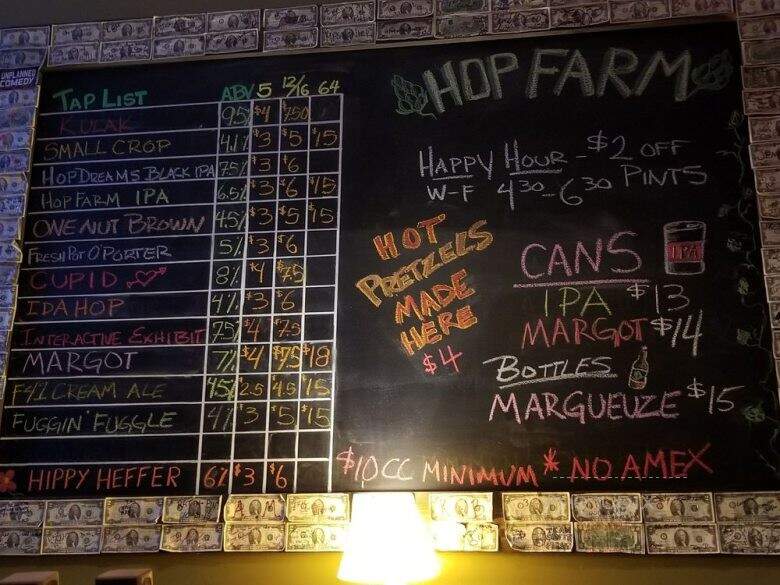 UNPLANNED
COMEDY
TAP LIST ABV 5 12/16 64
KULAK 9.5 $4 $7.50
SMALL CROP 4.1% $3 $5 $15
HOP DREAMS BLACK IPA 7.5% $3 $6
HOP FARM IPA 6.5% $3 $6 $15
ONE NUT BROWN 4.5% $3 $5 $15
FRESH POT O'PORTER 5% $3 $6
CUPID 8% $4 $7.5
IDA HOP 4% $3 $6
INTERACTIVE EXHIBIT 7.5% $4 $7.5
MARGOT 7% $4 $7.5 $18
F4% CREAM ALE 4.5% $2.5 4.5 $15
FUGGIN' FUGGLE 4% $3 $5 $15
HIPPY HEFFER 6% $3 $6
HOP FARM
HAPPY HOUR - $2 OFF
W-F 430-630 PINTS
HOT
PRETZELS
MADE
HERE
$4
CANS
IPA
IPA $13
MARGOT $14
BOTTLES
MARGUEUZE $15
$10 CC MINIMUM * NO AMEX